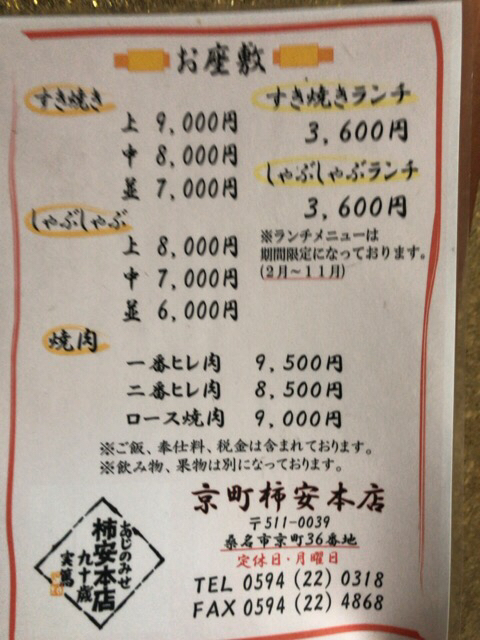 お座敷
すき焼き
上 9,000円
中 8,000円
並 7,000円
しゃぶしゃぶ
上 8,000円
中 7,000円
並 6,000円
すき焼きランチ
3,600円
しゃぶしゃぶランチ
3,600円
※ランチメニューは
期間限定になっております。
(2月～11月)
焼肉
一番ヒレ肉 9,500円
二番ヒレ肉 8,500円
ロース焼肉 9,000円
※ご飯、奉仕料、税金は含まれております。
※飲み物、果物は別になっております。
あじのみせ
柿安本店
九十歳
実篤
京町柿安本店
〒511-0039
桑名市京町36番地
定休日・月曜日
TEL 0594 (22) 0318
FAX 0594 (22) 4868